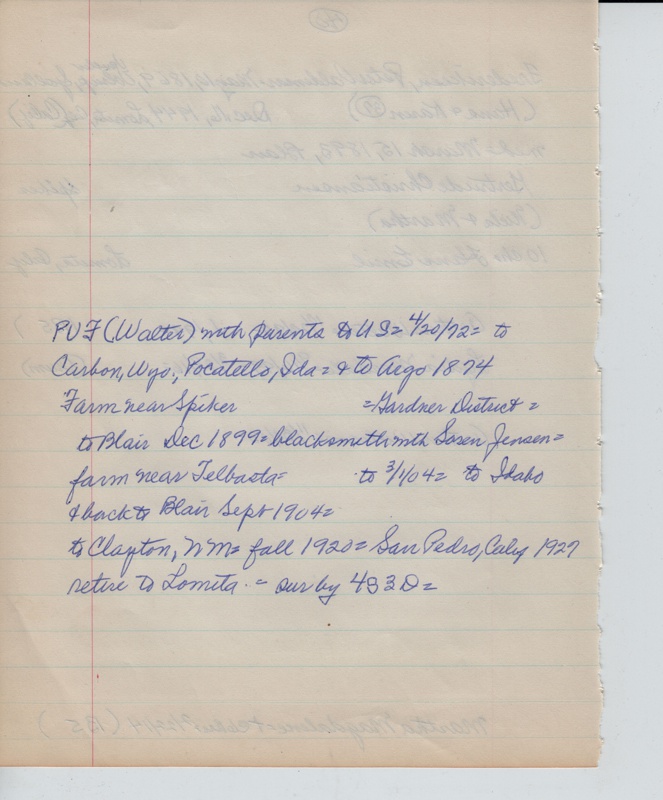 PVF (Walter) with parents to US = 4/20/72 = to
Carbon, Wyo., Pocatello, Ida = & to Argo 1874
Farm near Spiker = Gardner District =
to Blair Dec 1899 = blacksmith with Soren Jensen =
farm near Telbasta = to 3/1/04 = to Idaho
& back to Blair Sept 1904 =
to Clayton, NM = fall 1920 = San Pedro, Calif 1927
retire to Lomita = sur by 4S 3D =